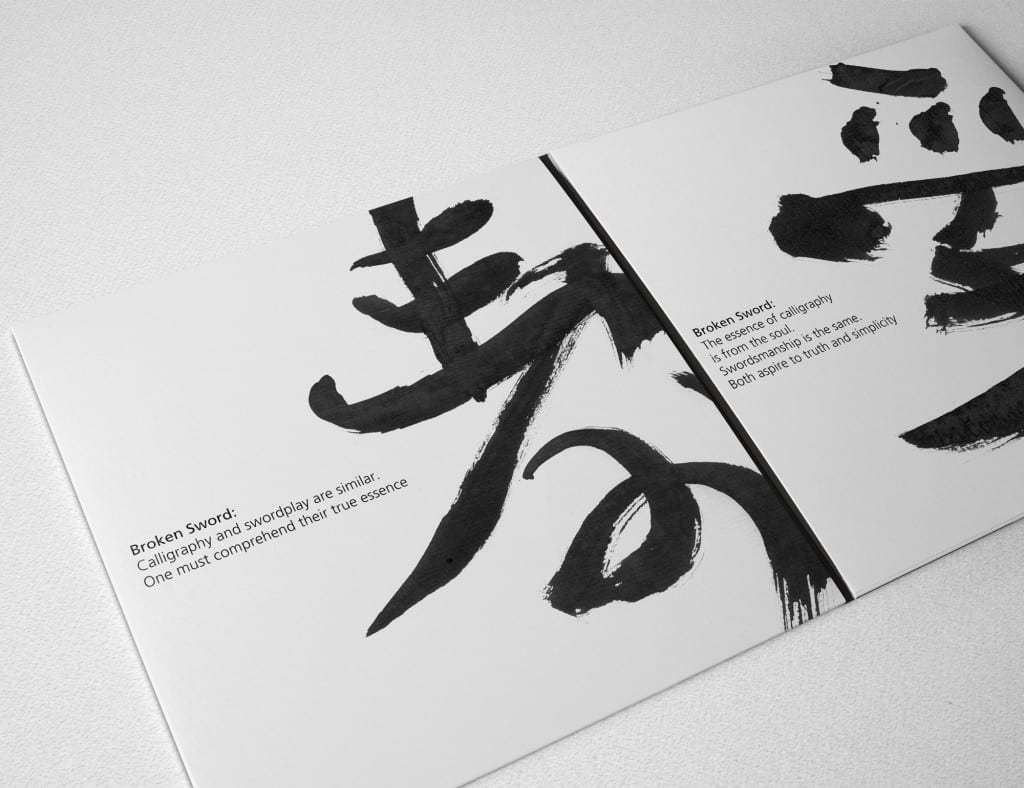 Broken Sword:
Calligraphy and swordplay are similar.
One must comprehend their true essence
Broken Sword:
The essence of calligraphy
is from the soul.
Swordsmanship is the same.
Both aspire to truth and simplicity